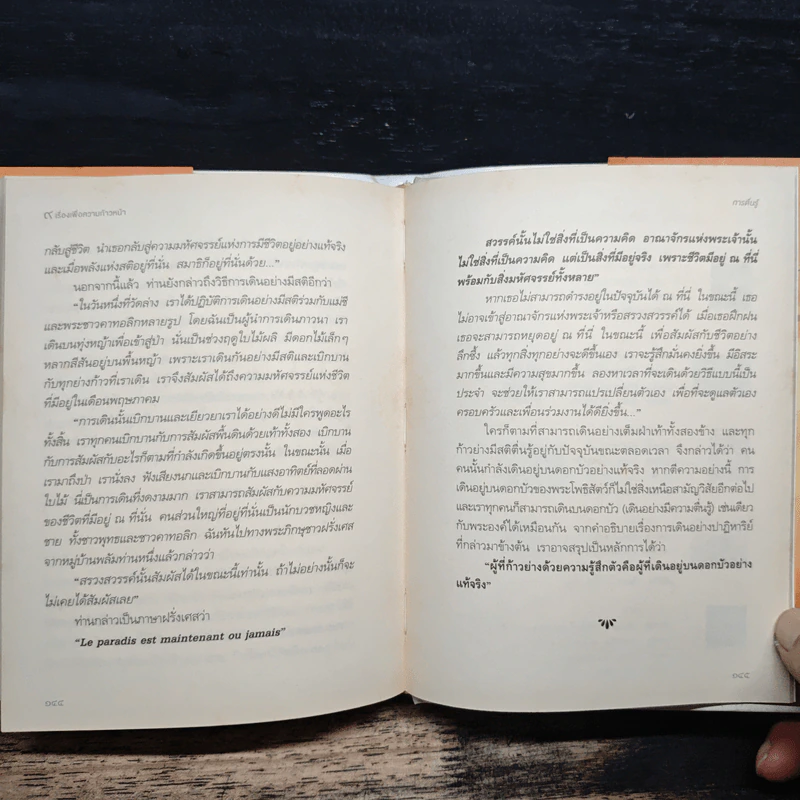 ๖๖ เรื่องเพื่อความก้าวหน้า
กลับสู่ชีวิต นำเธอกลับสู่ความมหัศจรรย์แห่งการมีชีวิตอยู่อย่างแท้จริง
และเมื่อพลังแห่งสติอยู่ที่นั่น สมาธิก็อยู่ที่นั่นด้วย..."
นอกจากนี้แล้ว ท่านยังกล่าวถึงวิธีการเดินอย่างมีสติอีกว่า
"ในวันหนึ่งที่วัดล่าง เราได้ปฏิบัติการเดินอย่างมีสติร่วมกับแม่ชี
และพระชาวคาทอลิกหลายรูป โดยฉันเป็นผู้นำการเดินภาวนา เรา
เดินบนทุ่งหญ้าเพื่อเข้าสู่ป่า นั่นเป็นช่วงฤดูใบไม้ผลิ มีดอกไม้เล็กๆ
หลากสีสันอยู่บนพื้นหญ้า เพราะเราเดินกันอย่างมีสติและเบิกบาน
กับทุกย่างก้าวที่เราเดิน เราจึงสัมผัสได้ถึงความมหัศจรรย์แห่งชีวิต
ที่มีอยู่ในเดือนพฤษภาคม
"การเดินนั้นเบิกบานและเยียวยาเราได้อย่างดีไม่มีใครพูดอะไร
ทั้งสิ้น เราทุกคนเบิกบานกับการสัมผัสพื้นดินด้วยเท้าทั้งสอง เบิกบาน
กับการสัมผัสกับอะไรก็ตามที่กำลังเกิดขึ้นอยู่ตรงนั้น ในขณะนั้น เมื่อ
เรามาถึงป่า เรานั่งลง ฟังเสียงนกและเบิกบานกับแสงอาทิตย์ที่ลอดผ่าน
ใบไม้ นี่เป็นการเดินที่งดงามมาก เราสามารถสัมผัสกับความมหัศจรรย์
ของชีวิตที่มีอยู่ ณ ที่นั่น คนส่วนใหญ่ที่อยู่ที่นั่นเป็นนักบวชหญิงและ
ชาย ทั้งชาวพุทธและชาวคาทอลิก ฉันหันไปทางพระภิกษุชาวฝรั่งเศส
จากหมู่บ้านพลัมท่านหนึ่งแล้วกล่าวว่า
"สรวงสวรรค์นั้นสัมผัสได้ในขณะนี้เท่านั้น ถ้าไม่อย่างนั้นก็จะ
ไม่เคยได้สัมผัสเลย"
ท่านกล่าวเป็นภาษาฝรั่งเศสว่า
"Le paradis est maintenant ou jamais"
การตื่นรู้
สวรรค์นั้นไม่ใช่สิ่งที่เป็นความคิด อาณาจักรแห่งพระเจ้านั้น
ไม่ใช่สิ่งที่เป็นความคิด แต่เป็นสิ่งที่มีอยู่จริง เพราะชีวิตมีอยู่ ณ ที่นี่
พร้อมกับสิ่งมหัศจรรย์ทั้งหลาย"
หากเธอไม่สามารถดำรงอยู่ในปัจจุบันได้ ณ ที่นี่ ในขณะนี้ เธอ
ไม่อาจเข้าสู่อาณาจักรแห่งพระเจ้าหรือสรวงสวรรค์ได้ เมื่อเธอฝึกฝน
เธอจะสามารถหยุดอยู่ ณ ที่นี่ ในขณะนี้ เพื่อสัมผัสกับชีวิตอย่าง
ลึกซึ้ง แล้วทุกสิ่งทุกอย่างจะดีขึ้นเอง เราจะรู้สึกมั่นคงยิ่งขึ้น มีอิสระ
มากขึ้นและมีความสุขมากขึ้น ลองหาเวลาที่จะเดินด้วยวิธีแบบนี้เป็น
ประจำ จะช่วยให้เราสามารถแปรเปลี่ยนตัวเอง เพื่อที่จะดูแลตัวเอง
ครอบครัวและเพื่อนร่วมงานได้ดียิ่งขึ้น..."
ใครก็ตามที่สามารถเดินอย่างเต็มฝ่าเท้าทั้งสองข้าง และทุก
ก้าวย่างมีสติตื่นรู้อยู่กับปัจจุบันขณะตลอดเวลา จึงกล่าวได้ว่า คน
คนนั้นกำลังเดินอยู่บนดอกบัวอย่างแท้จริง หากตีความอย่างนี้ การ
เดินอยู่บนดอกบัวของพระโพธิสัตว์ก็ไม่ใช่สิ่งเหนือสามัญวิสัยอีกต่อไป
และเราทุกคนก็สามารถเดินบนดอกบัว (เดินอย่างมีความตื่นรู้) เช่นเดียว
กับพระองค์ได้เหมือนกัน จากคำอธิบายเรื่องการเดินอย่างปาฏิหาริย์
ที่กล่าวมาข้างต้น เราอาจสรุปเป็นหลักการได้ว่า
"ผู้ที่ก้าวย่างด้วยความรู้สึกตัวคือผู้ที่เดินอยู่บนดอกบัวอย่าง
แท้จริง"